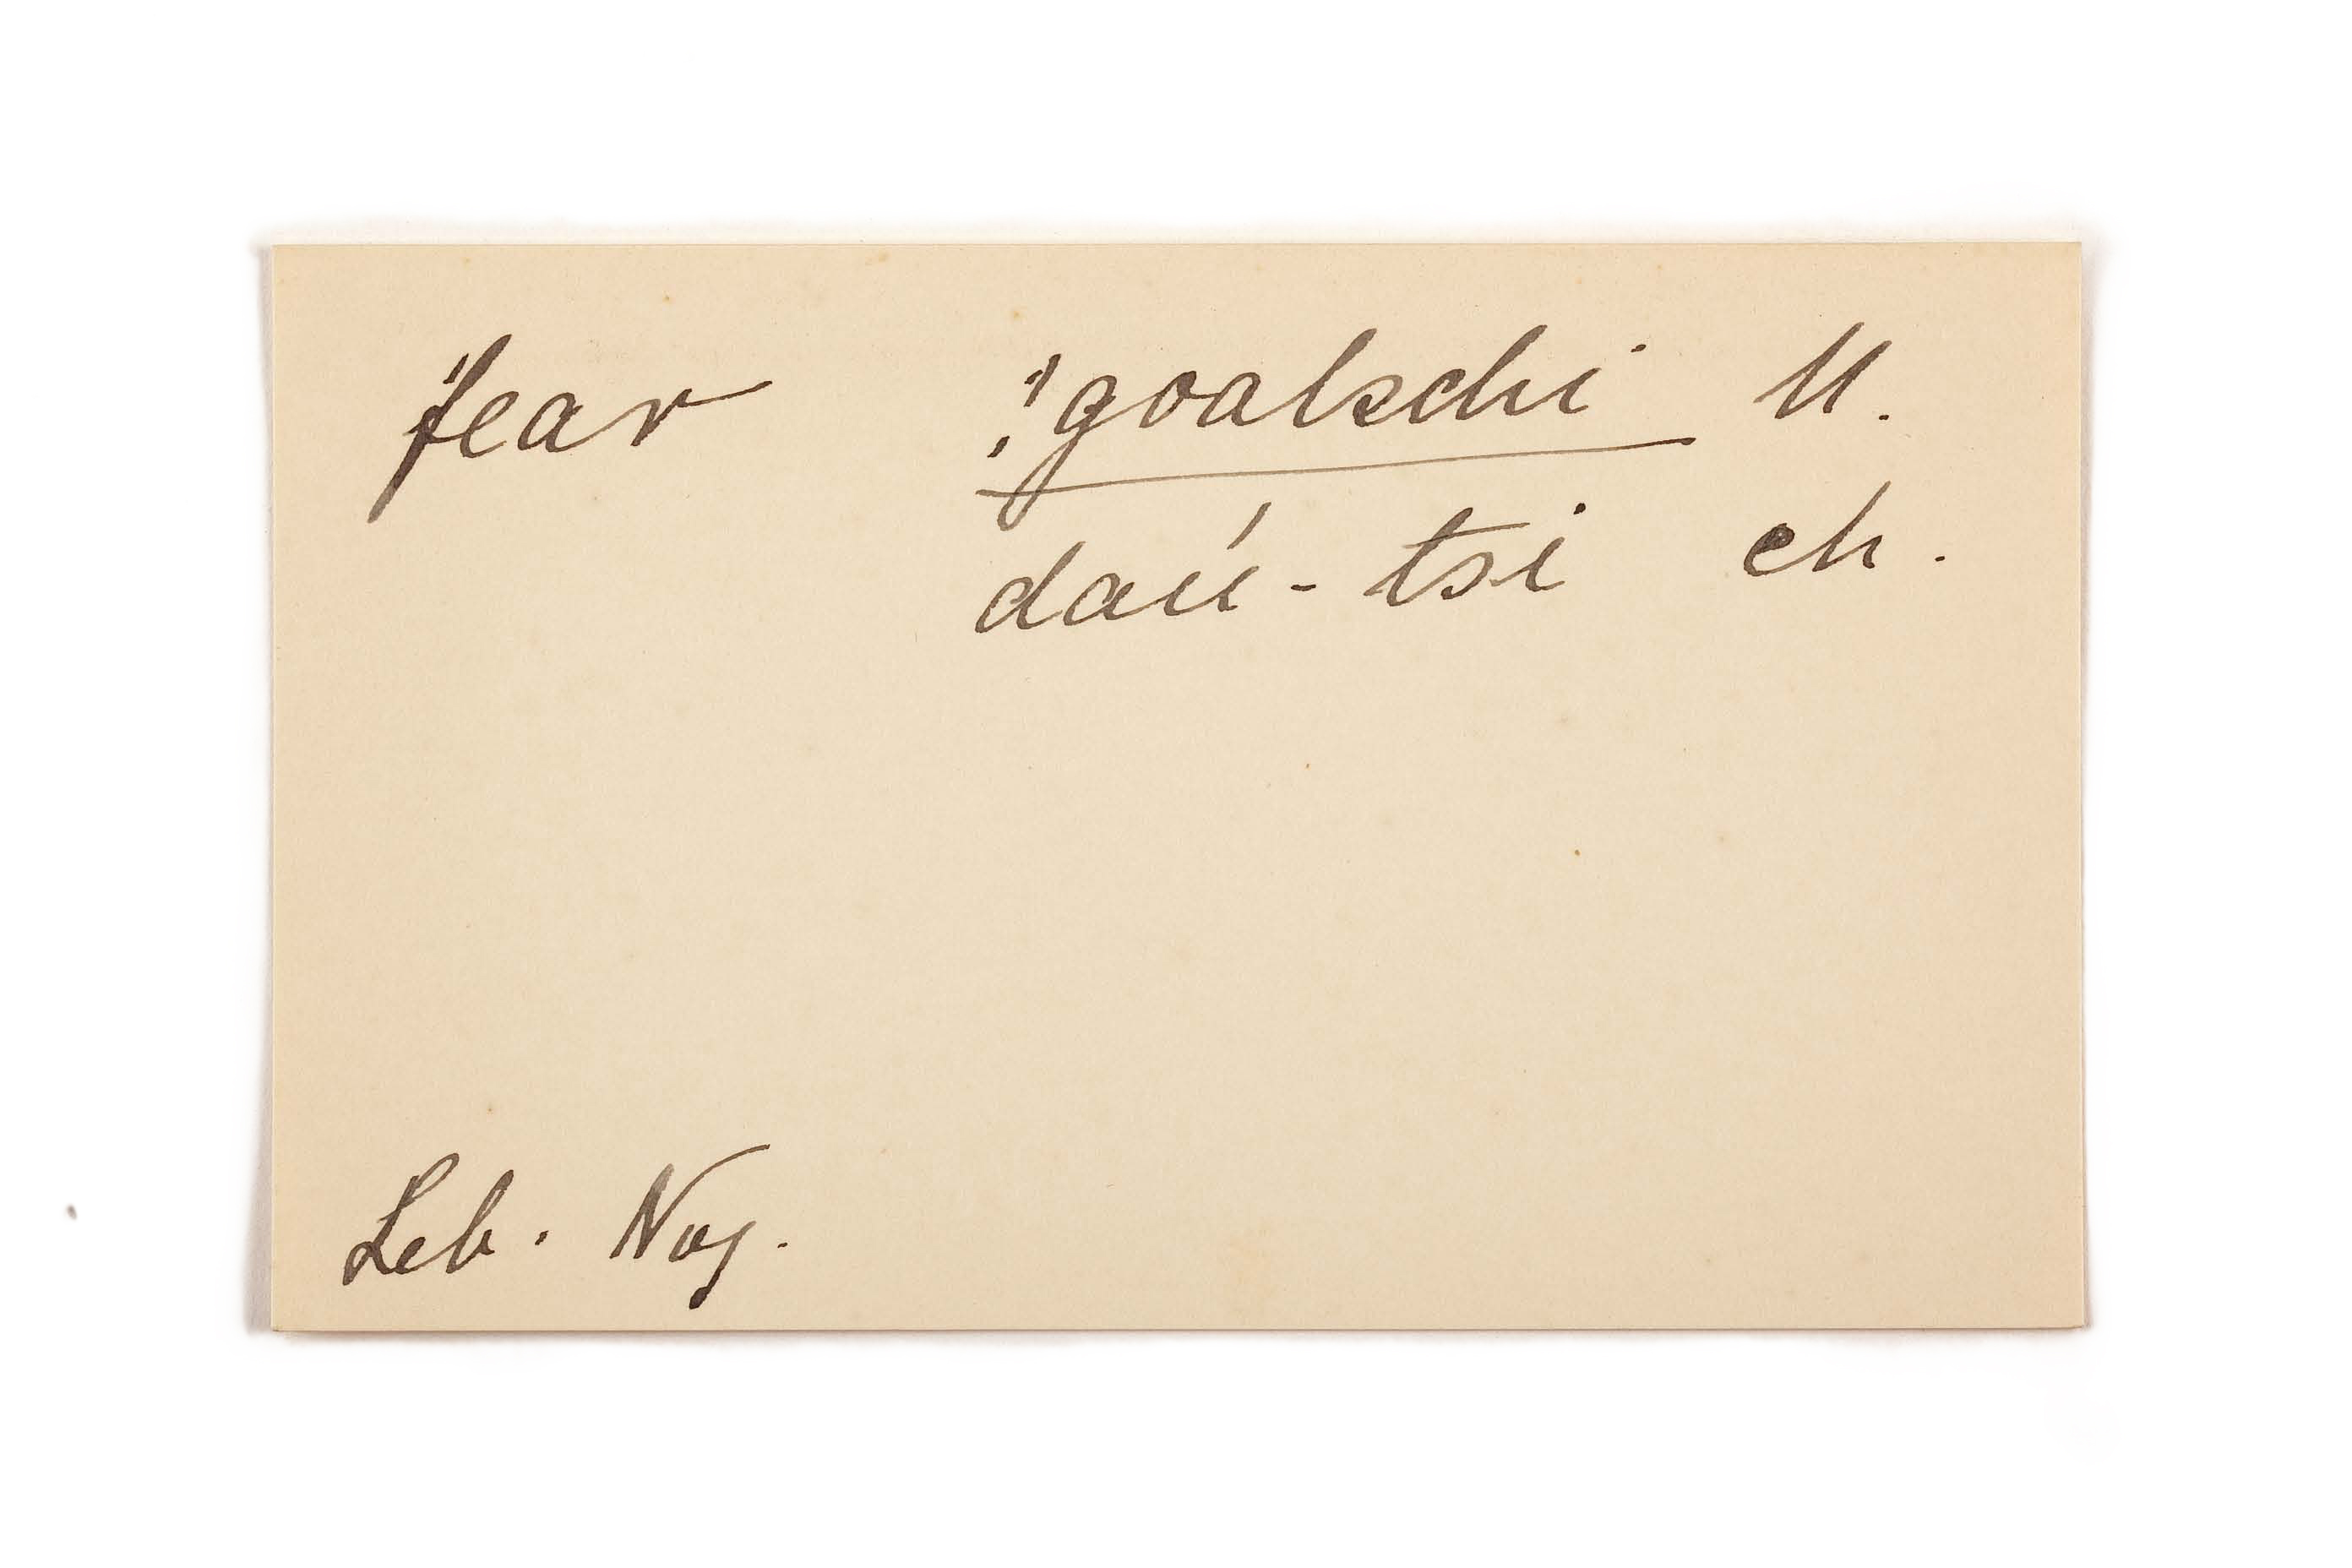 fear goalschi U.
daú-tsi ch.
Leb. Nog.